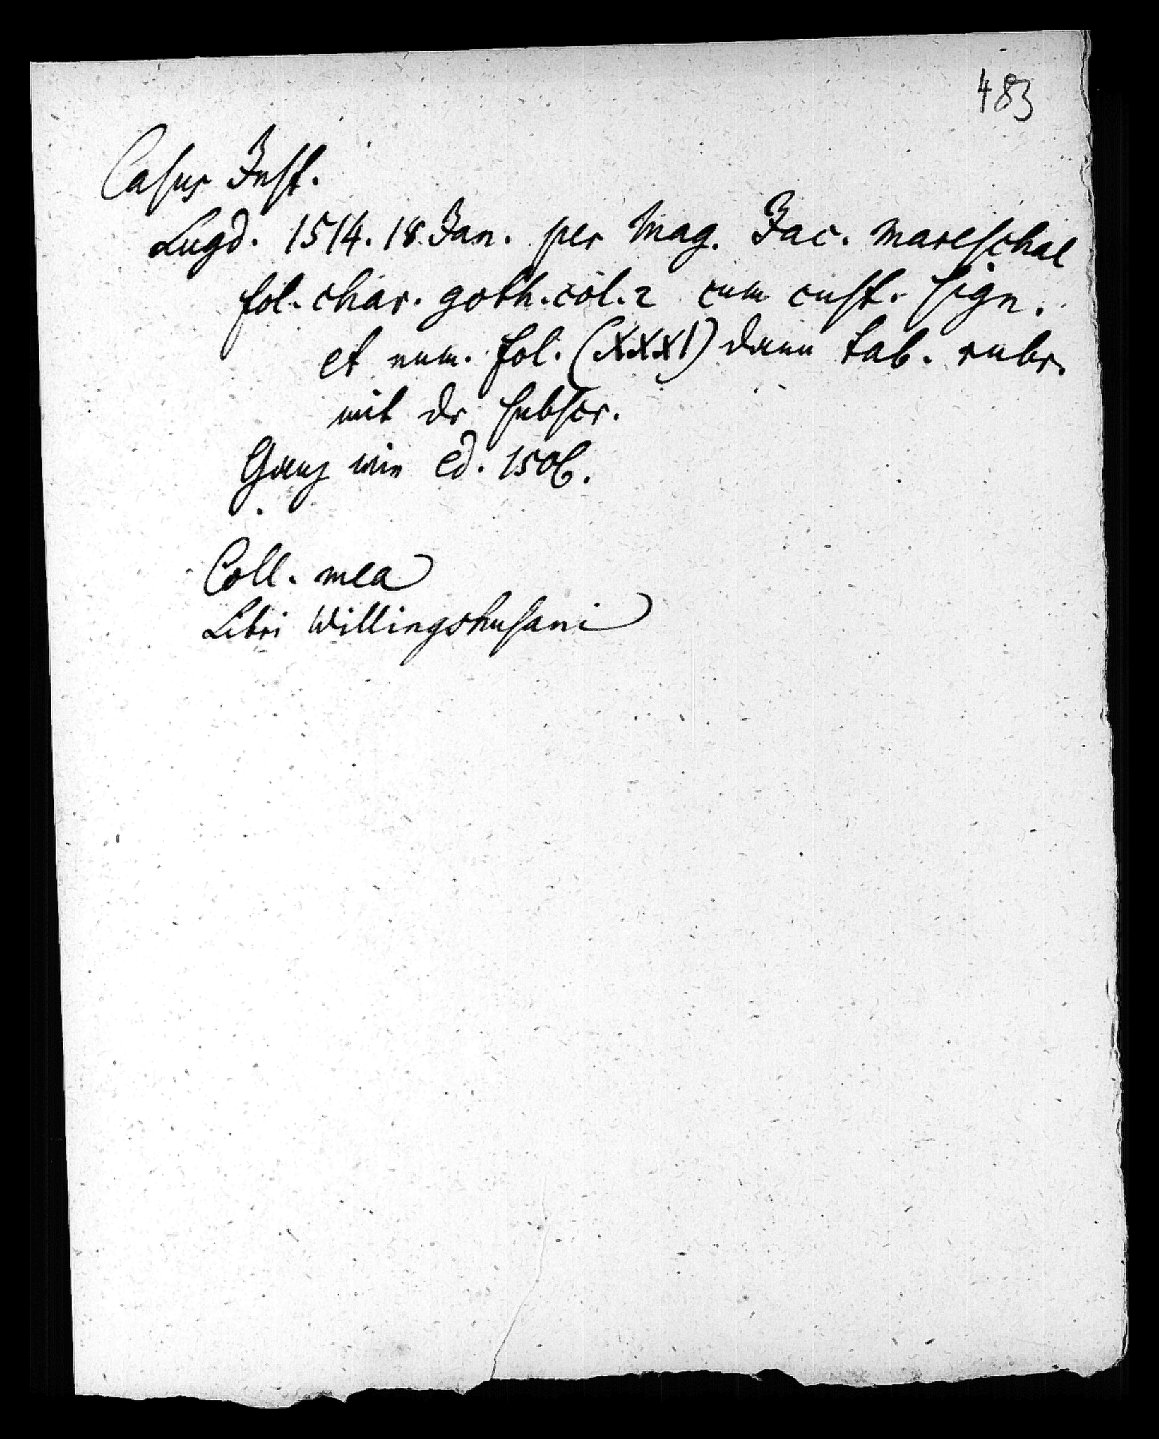 483
Casus Inst.
Lugd. 1514. 18. Jan. per Mag. Jac. Mareschal
fol. char. goth. col. 2 cum cust. sign.
et num. fol. (XXXI) dann tab. rubr.
mit dr subscr.
Ganz wie ed. 1506.
Coll. mea
Libri Willingshusani